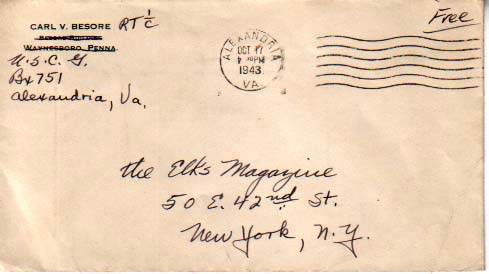 CARL V. BESORE RT 1/c
WAYNESBORO, PENNA.
U.S.C.G.
Bx 751
Alexandria, Va.
Free
ALEXANDRIA
OCT 17
PM
1943
VA.
The Elks Magazine
50 E. 42nd St.
New York, N.Y.